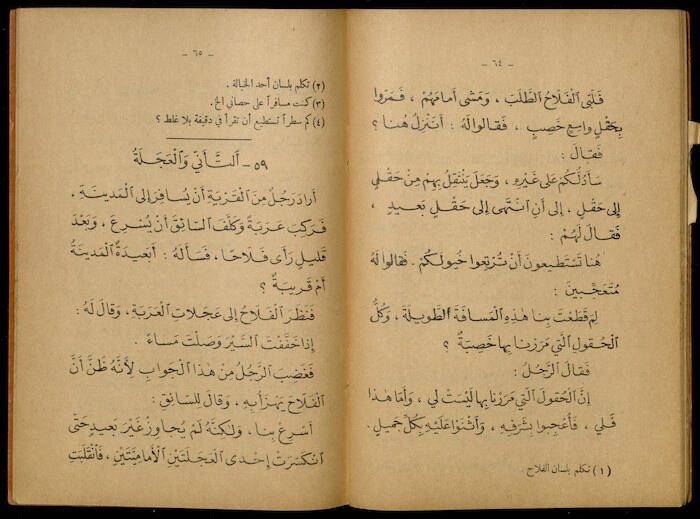 – ٦٤ –
فَلَبَّى ٱلْفَلَّاحُ ٱلطَّلَبَ ، وَمَشَى أَمَامَهُمْ ، فَمَرُّوا
بِحَقْلٍ وَاسِعٍ خَصِبٍ ، فَقَالُوا لَهُ : أَنَنْزِلُ هُنَا ؟
فَقَالَ :
سَأَدُلُّكُمْ عَلَى غَيْرِهِ ، وَجَعَلَ يَنْتَقِلُ بِهِمْ مِنْ حَقْلٍ
إِلَى حَقْلٍ ، إِلَى أَنِ ٱنْتَهَى إِلَى حَقْلٍ بَعِيدٍ ،
فَقَالَ لَهُمْ :
هُنَا تَسْتَطِيعُونَ أَنْ تُرْتِعُوا خُيُولَكُمْ . فَقَالُوا لَهُ
مُتَعَجِّبِينَ :
لِمَ قَطَعْتَ بِنَا هٰذِهِ ٱلْمَسَافَةَ ٱلطَّوِيلَةَ ، وَكُلُّ
ٱلْحُقُولِ ٱلَّتِي مَرَرْنَا بِهَا خَصِبَةٌ ؟
فَقَالَ ٱلرَّجُلُ :
إِنَّ ٱلْحُقُولَ ٱلَّتِي مَرَرْنَا بِهَا لَيْسَتْ لِي ، وَأَمَّا هٰذَا
فَلِي ، فَأُعْجِبُوا بِشَرَفِهِ ، وَأَثْنَوْا عَلَيْهِ بِكُلِّ جَمِيلٍ .
(١) تكلم بلسان الفلاح .
– ٦٥ –
(٢) تكلم بلسان أحد الخيالة .
(٣) كنت مسافراً على حصاني الخ .
(٤) كم سطراً تستطيع أن تقرأ في دقيقة بلا غلط ؟
٥٩ - اَلتَّأَنِّي وَٱلْعَجَلَةُ
أَرَادَ رَجُلٌ مِنَ ٱلْقَرْيَةِ أَنْ يُسَافِرَ إِلَى ٱلْمَدِينَةِ ،
فَرَكِبَ عَرَبَةً وَكَلَّفَ ٱلسَّائِقَ أَنْ يُسْرِعَ ، وَبَعْدَ
قَلِيلٍ رَأَى فَلَّاحًا ، فَسَأَلَهُ : أَبَعِيدَةٌ ٱلْمَدِينَةُ
أَمْ قَرِيبَةٌ ؟
فَنَظَرَ ٱلْفَلَّاحُ إِلَى عَجَلَاتِ ٱلْعَرَبَةِ ، وَقَالَ لَهُ :
إِذَا خَفَّفْتَ ٱلسَّيْرَ وَصَلْتَ مَسَاءً .
فَغَضِبَ ٱلرَّجُلُ مِنْ هٰذَا ٱلْجَوَابِ لِأَنَّهُ ظَنَّ أَنَّ
ٱلْفَلَّاحَ يَهْزَأُ بِهِ ، وَقَالَ لِلسَّائِقِ :
أَسْرِعْ بِنَا . وَلٰكِنَّهُ لَمْ يُجَاوِزْ غَيْرَ بَعِيدٍ حَتَّى
ٱنْكَسَرَتْ إِحْدَى ٱلْعَجَلَتَيْنِ ٱلْأَمَامِيَّتَيْنِ ، فَٱنْقَلَبَتِ